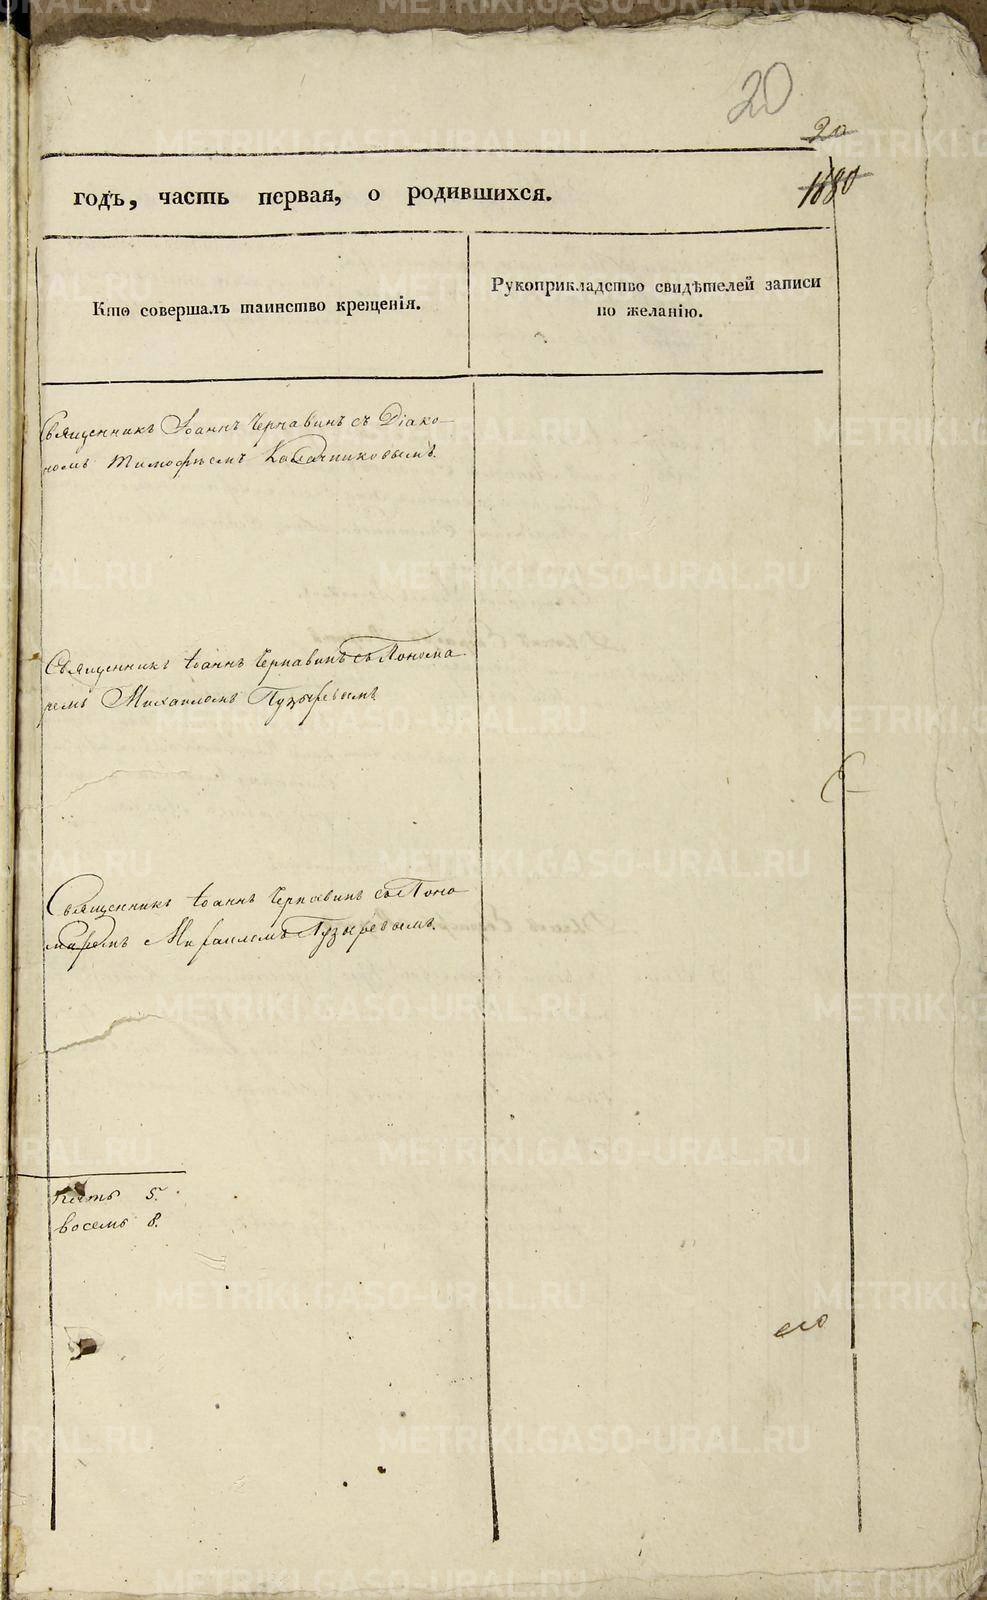 20
20
1880
годъ, часть первая, о родившихся.
Кто совершалъ таинство крещенія.
Рукоприкладство свидѣтелей записи
по желанію.
Священникъ Іоаннъ Чернавинъ съ Діако-
номъ Тимофѣемъ
Священникъ Іоаннъ Чернавинъ съ Понома
ремъ Михаиломъ Пузыревымъ
Священникъ Іоаннъ Чернавинъ съ Поно
маремъ Михаиломъ Пузыревымъ.
пять 5.
восемь 8.
METRIKI.GASO-URAL.RU